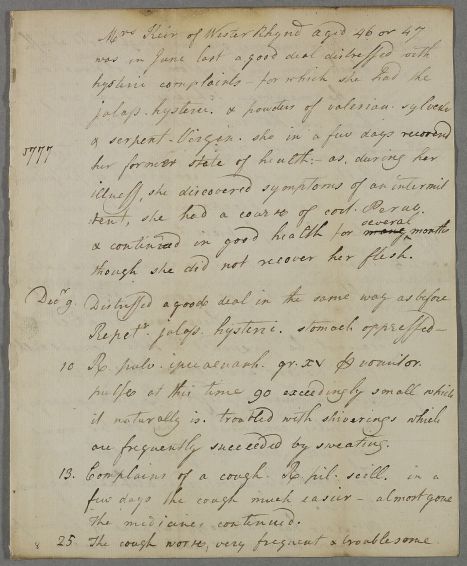 Mrs Keir of Wester Rhynd aged 46 or 47
was in June last a good deal distressed with
hysteric complaints - for which she had the
julap. hysteric. & powders of valerian. sylvestr
& serpent. Virgin. she in a few days recovered
1777
her former state of health :- as, during her
illness, she discovered symptoms of an intermit
tent, she had a course of cort. Peruv.
& continued in good health for many several months
though she did not recover her flesh.
Decr 9. Distressed a good deal in the same way as before
Repetr. julap. hysteric. stomach oppressed -
10 R. pulv. ipecacuanh. gr. xv p vomitor.
pulses at this time 90 exceedingly small which
it naturally is. troubled with shiverings which
are frequently succeeded by sweating.
13. Complains of a cough. R. pil. scill. in a
few days the cough much easier - almost gone
The medicines continued.
25. The cough worse, very frequent & troublesome